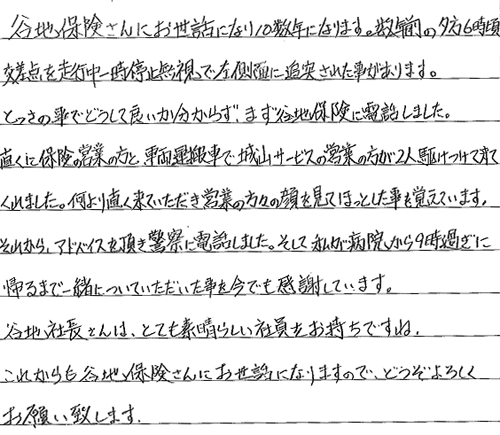 谷地保険さんにお世話になり10数年になります。数年前の夕方6時頃
交差点を走行中一時停止無視で左側面に追突された事があります。
とっさの事でどうして良いか分からず、まず谷地保険に電話しました。
直ぐに保険の営業の方と、車両運搬車で城山サービスの営業の方が2人駆けつけて来て
くれました。何より直ぐ来ていただき営業の方々の顔を見てほっとした事も覚えています。
それから、アドバイスを頂き警察に電話しました。そして私が病院から9時過ぎに
帰るまで一緒についていただいた事を今でも感謝しています。
谷地社長さんは、とても素晴らしい社員をお持ちですね。
これからも谷地保険さんにお世話になりますので、どうぞよろしく
お願い致します.